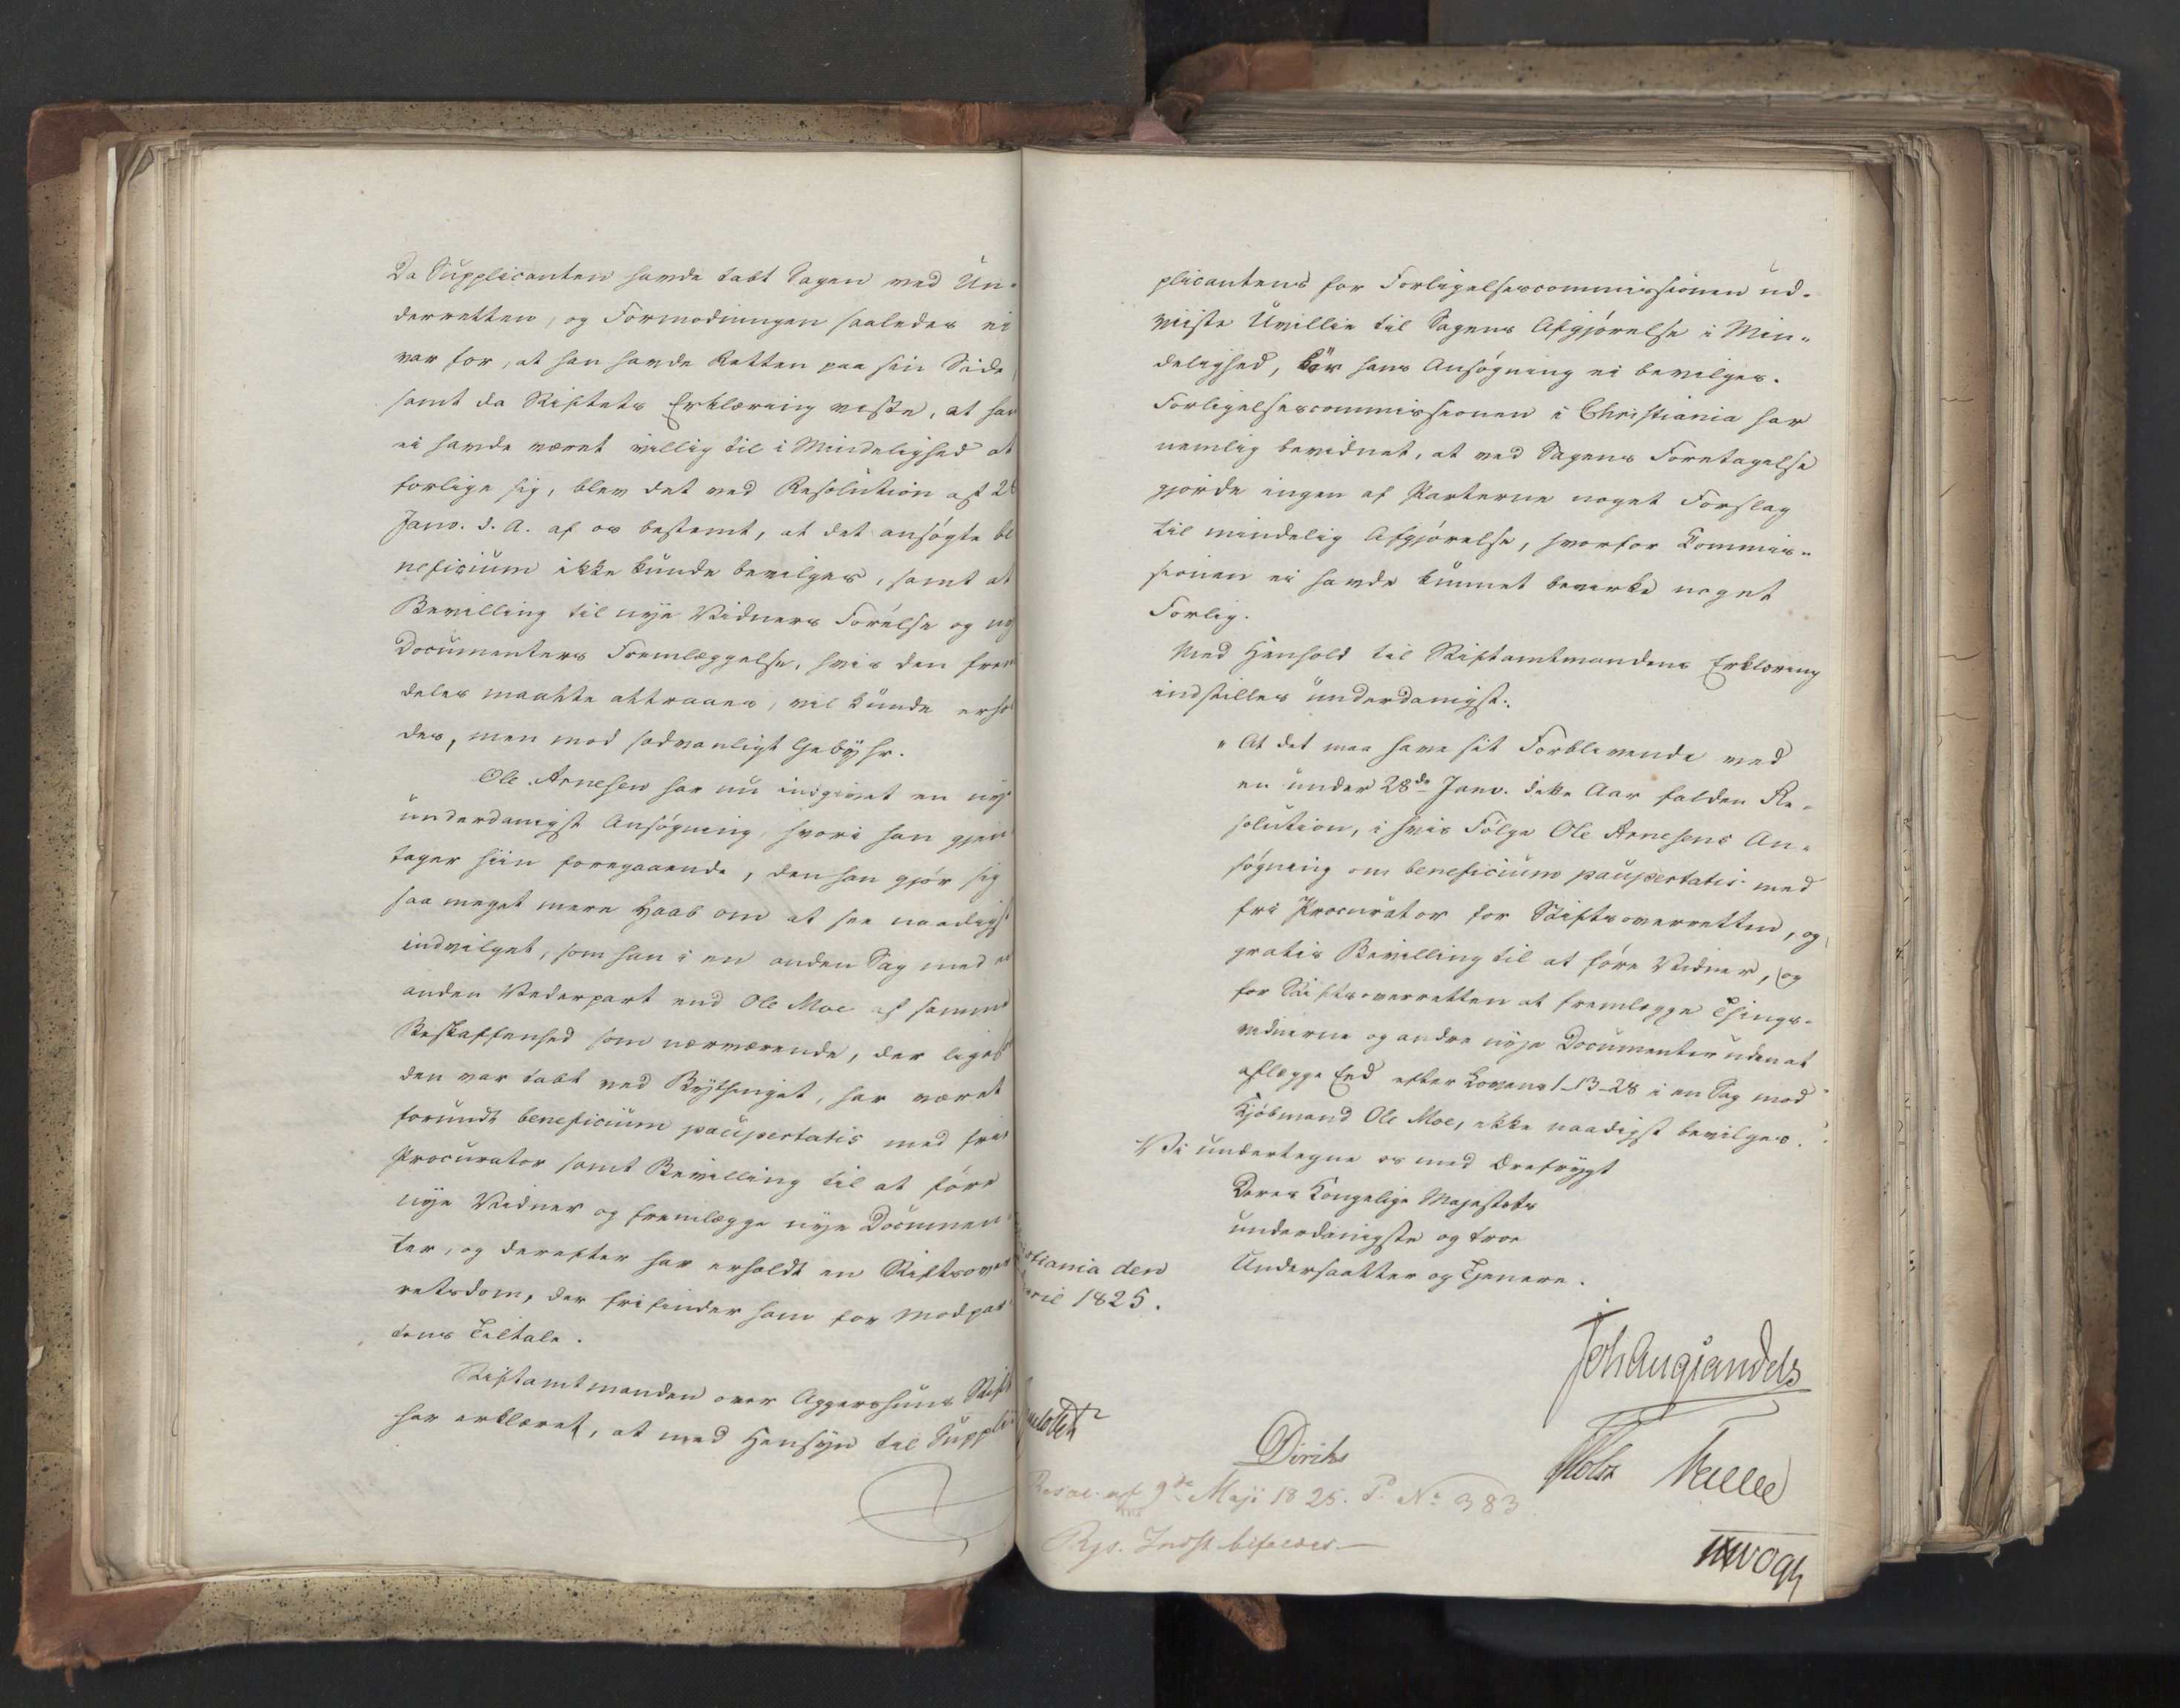 Da Supplicanten havde tabt Sagen ved Un-
derretten, og Formodningen saaledes ei
var for, at han havde Retten paa sin Side,
samt da Stiftets Erklæring viste, at han
ei havde været villig til i Mindelighed at
forlige sig, blev det ved Resolution af 28
Janv. d. A. af os bestemt, at det ansøgte be
neficium ikke kunde bevilges, samt at
Bevilling til nye Vidners Førelse og nye
Documenters Fremlæggelse, hvis den frem
deles maatte attraaes, vil kunde erhol
des, men mod sædvanligt Gebyhr.
Ole Arnesen har nu indgivet en ny
underdanigst Ansøgning, hvori han gjen
tager hiin foregaaende, den han gjør sig
saa meget mere Haab om at see naadigst
indvilget, som han i en anden Sag med en
anden Vederpart end Ole Moe af samme
Beskaffenhed som nærværende, der ligele
den var tabt ved Bythinget, har været
forundt beneficium paupertatis med frie
Procurator samt Bevilling til at føre
nye Vidner og fremlægge nye Documen
ter, og derefter har erholdt en Stiftsover
retsdom, der frifinder ham for Modpar
tens Tiltale.
Stiftamtmanden over Aggershuus Stift
har erklæret, at med Hensyn til Suppli
plicantens for Forligelsescommissionen ud-
viiste Uvillie til Sagens Afgjørelse i Min-
delighed, bør hans Ansøgning ei bevilges.
Forligelsescommissionen i Christiania har
nemlig bevidnet, at ved Sagens Foretagelse
gjorde ingen af Parterne noget Forslag
til mindelig Afgjørelse, hvorfor Commis-
sionen ei havde kunnet bevirke noget
Forlig.
Med Henhold til Stiftamtmandens Erklæring
indstilles underdanigst:
"At det maa have sit Forblivende ved
en under 28de Janv. dette Aar falden Re-
solution, i hvis Følge Ole Arnesens An-
søgning om beneficium paupertatis med
fri Procurator for Stiftsoverretten, og
gratis Bevilling til at føre Vidner, og
for Stiftsoverretten at fremlægge Things-
vidnerne og andre nye Documenter uden at
aflægge Eed efter Lovens 1-13-28 i en Sag mod
Kjøbmand Ole Moe, ikke naadigst bevilges."
Vi undertegne os med Ærefrygt
Deres Kongelige Majestæts
underdanigste og troe
Undersaatter og Tjenere.
stiania den
pril 1825.
Joh Aug Sandels
Diriks
Holst
Resol. af 9de Maji 1825. P. No 383
Rgs. Indst. bifaldes